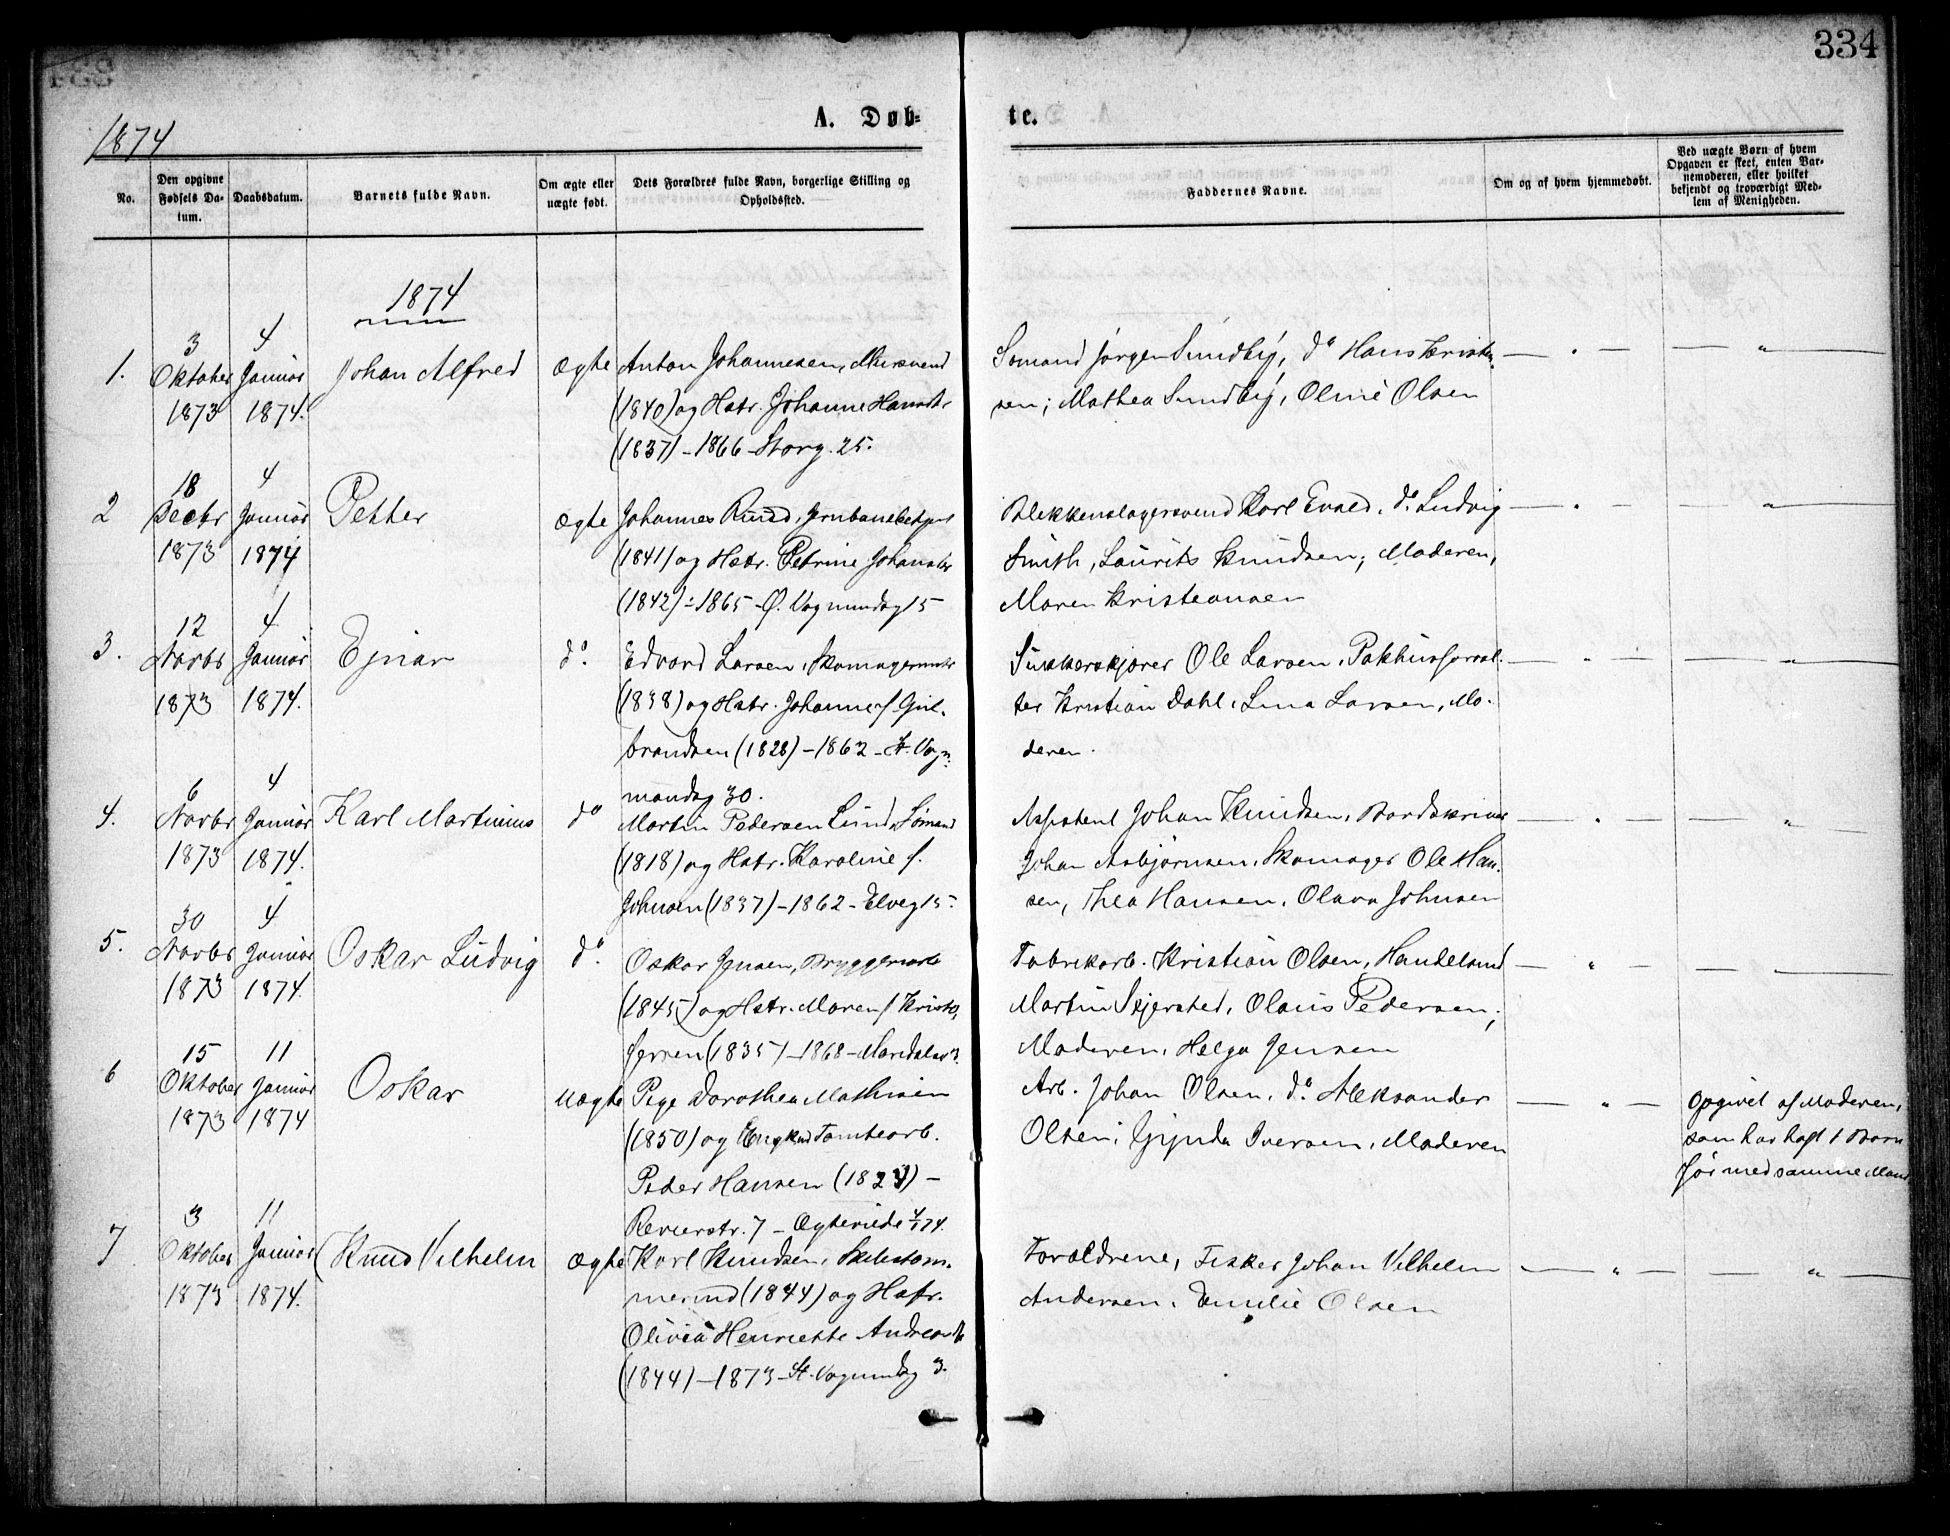 334
1874
A. Døb-
te.
No.
Den opgivne Fødsels Da-
tum.
Daabsdatum.
Barnets fulde Navn.
Om ægte eller
uægte født.
Dets Forældres fulde Navn, borgerlige Stilling og
Opholdsted.
Faddernes Navne.
Om og af hvem hjemmedøbt.
Ved uægte Børn af hvem
Opgaven er skeet, enten Bar-
nemoderen, eller hvilket
bekjendt og troværdigt Med-
lem af Menigheden.
1874
1.
3 Oktober 1873
4 Januar 1874.
Johan Alfred
Ægte
Anton Johannesen, Mursvend
(1840) og Hstr. Johanne Hansdtr
(1837) - 1866 - Storg. 25.
Sømand Jørgen Sundby, do Hans Kristen-
sen; Mathea Sundby, Oline Olsen
2
18 Decbr 1873
4 Januar 1874
Petter
Ægte
Johannes Ruud, Jernbanebetjent
(1841) og Hstr. Petrine Johansdtr
(1842) - 1865 - Ø. Vognmandsg 15
Blikkenslagersvend Karl Evald, do Ludvig
Smith, Laurits Knudsen; Moderen,
Maren Kristiansen
3.
12 Novbr 1873
4 Januar 1874.
Ejnar
do.
Edvard Larsen, Skomagermster
(1838) og Hstr. Johanne f. Gul-
brandsen (1828) - 1862 - St. Vogn-
mandsg 30.
Sukkerskjører Ole Larsen, Pakhusforval-
ter Kristian Dahl, Lina Larsen, Mo-
deren.
4.
6 Novbr 1873
4 Januar 1874.
Karl Martinius
do
Martin Pedersen Lund, Sømand
(1818) og Hstr. Karoline f.
Johnsen (1837) - 1862 - Elveg 15.
Assistent Johan Knudsen, Bordskriver
Johan Asbjørnsen, Skomager Ole Han-
sen, Thea Hansen, Olava Johnsen
5.
30 Novbr 1873
4 Januar 1874.
Oskar Ludvig
do.
Oskar Jensen, Bryggeriarb
(1845) og Hstr. Maren f Kristo-
fersen (1835) - 1868 - Maridalsv 3.
Fabrikarb. Kristian Olsen, Handelsmd
Martin Skjersted, Olaus Pedersen;
Moderen, Helga Jensen
6
15 Oktober 1873
11 Januar 1874
Oskar
Uægte
Pige Dorothea Mathisen
(1850) og Enkemd Tomtearb.
Peder Hansen (1824) -
Revierstr. 7 - Ægteviede 4/1 74.
Arb. Johan Olsen, do. Aleksander
Olsen; Gynda Iversen, Moderen
Opgivet af Moderen,
som har havt 1 Barn
før med samme Mand
7
3 Oktober 1873
11 Januar 1874.
Knud Vilhelm
Ægte
Karl Knudsen, Skibstøm-
mermd (1844) og Hstr.
Olivia Henriette Andreasdtr
(1844) - 1873 - St. Vognmandsg 3.
Forældrene, Fisker Johan Vilhelm
Andersen, Emilie Olsen